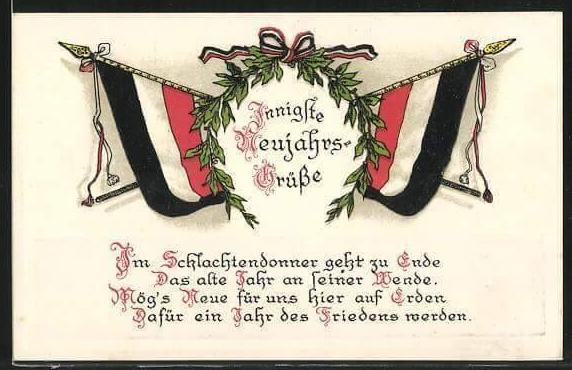 Innigste
Neujahrs-
Grüße
Im Schlachtendonner geht zu Ende
Das alte Jahr an seiner Wende.
Mög's Neue für uns hier auf Erden
Dafür ein Jahr des Friedens werden.